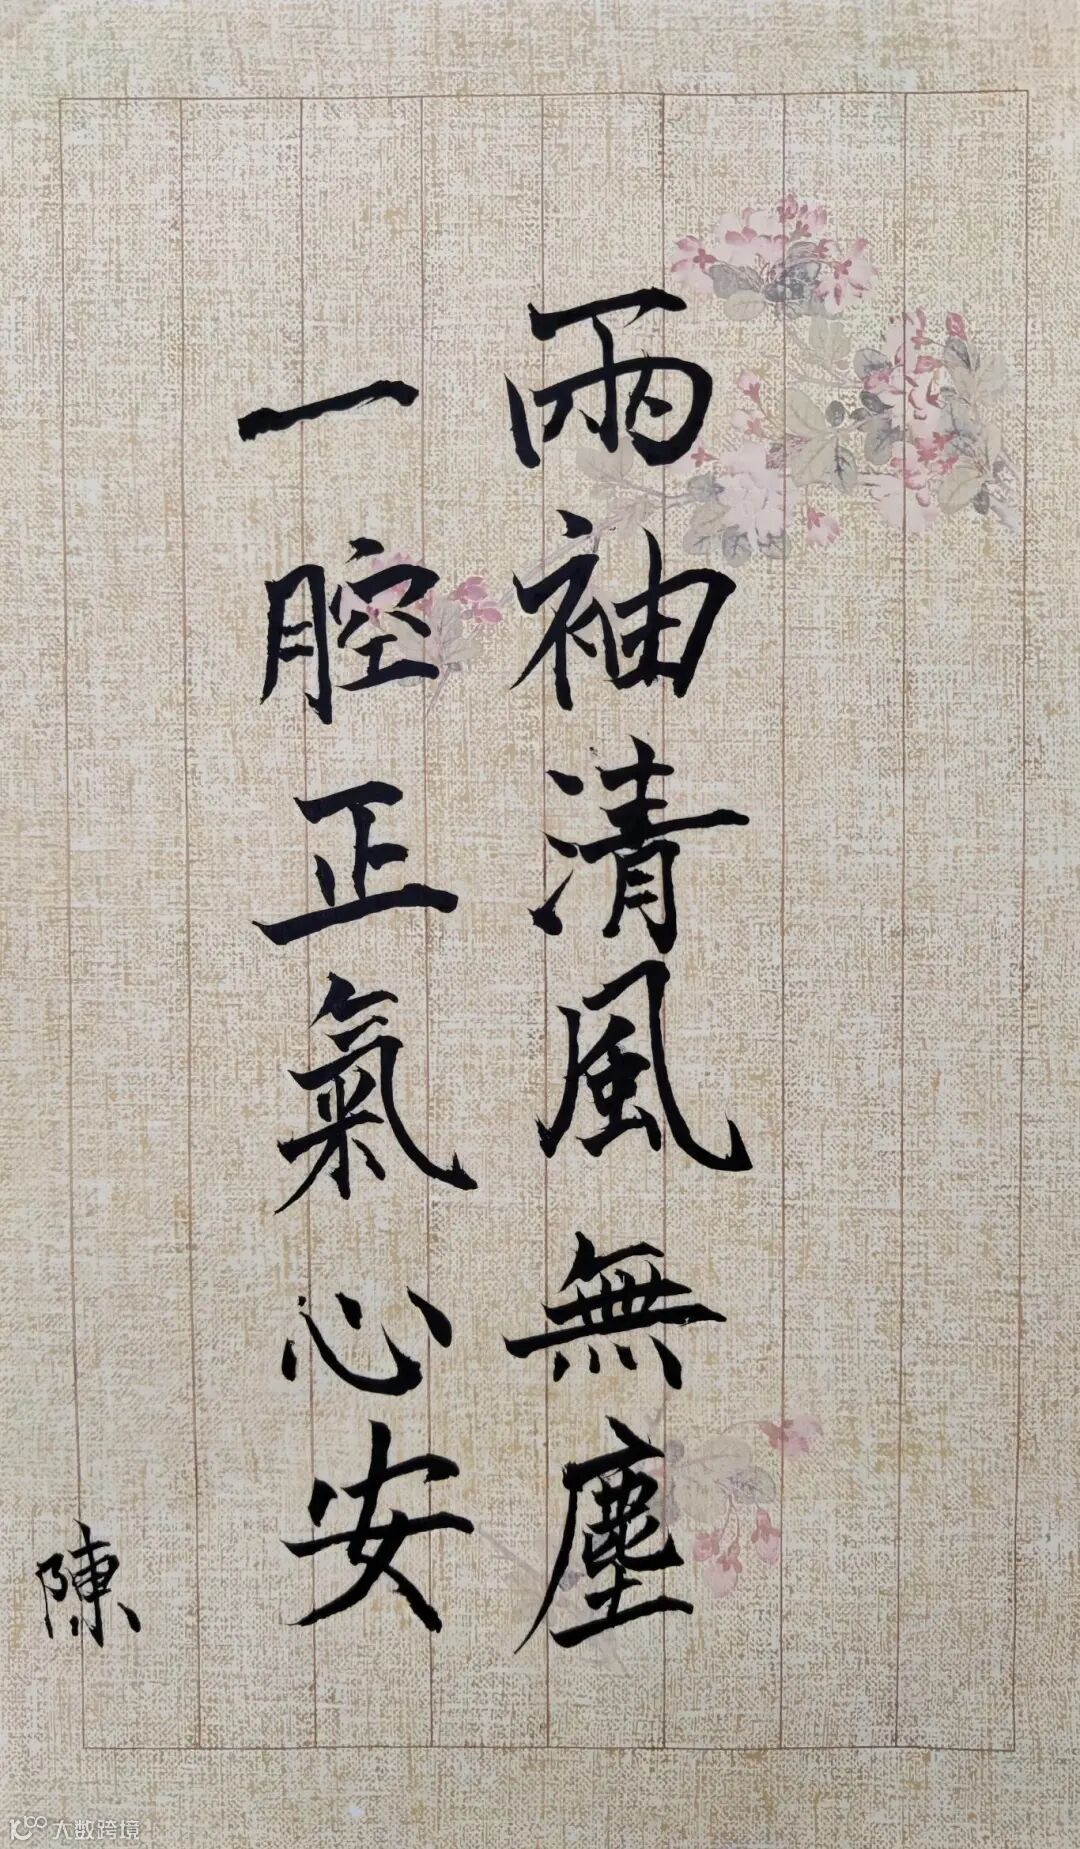 兩袖清風無塵
一腔正氣心安
陳
大数跨境